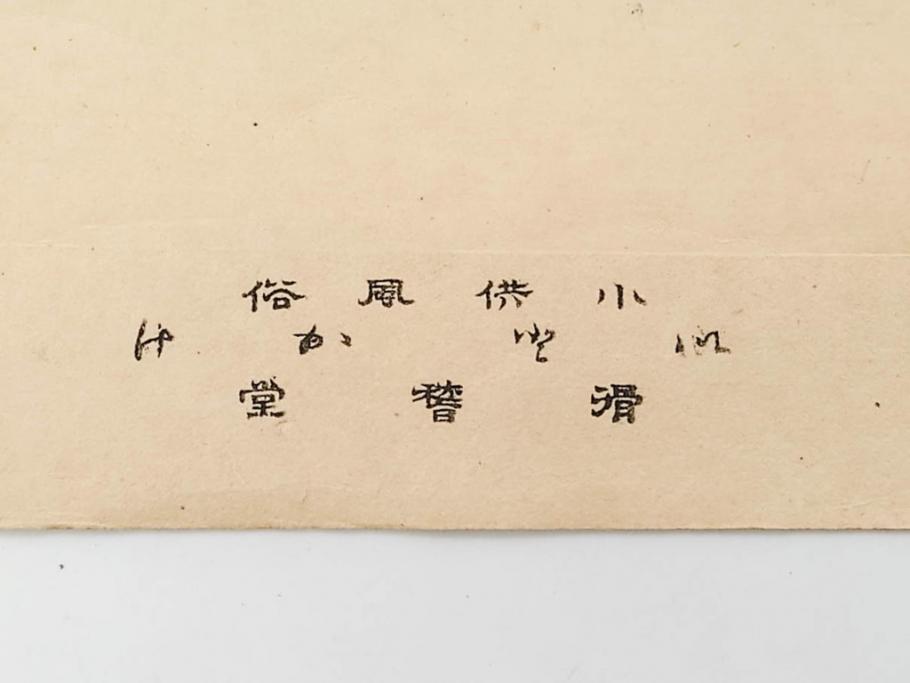 小供風俗
かけ
滑稽堂